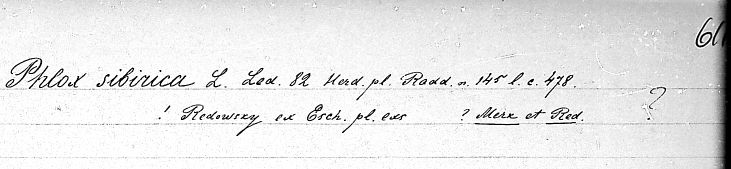 61
Phlox sibirica L. Led. 82 Herd. pl. Radd. n. 145 l. c. 478.
! Redowsky ex Esch. pl. exs ? Merk et Red. ?